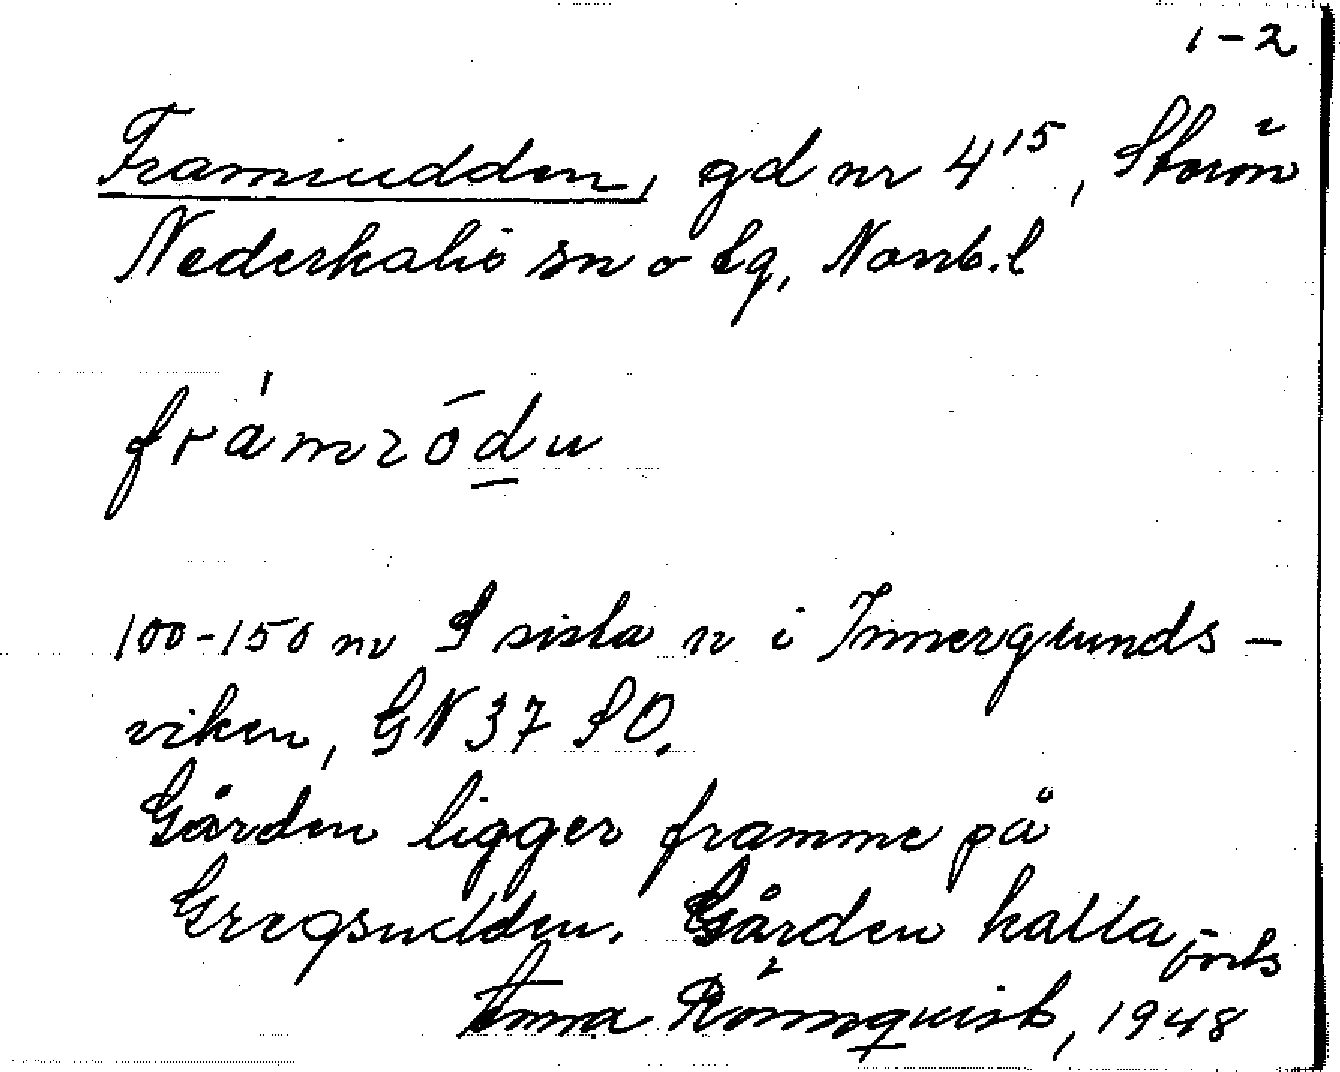 1-2
Framudden, gd nr 4¹⁵, Storön
Nederkalix sn o tg, Norrb.l
frámzōd̲u
100-150 m S sista n i Innergrunds-
viken, GN 37 SO.
Gården ligger framme på
Gregsudden. Gården kalla
forts
Anna Rönnqvist, 1948